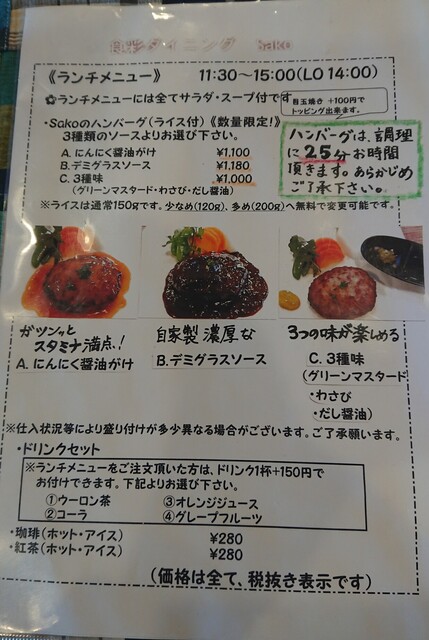 ダイニング Sako
《ランチメニュー》 11:30~15:00(LO 14:00)
✿ランチメニューには全てサラダ・スープ付です
目玉焼き +100円で
トッピング出来ます。
・Sakoのハンバーグ(ライス付)《数量限定!》
3種類のソースよりお選び下さい。
A. にんにく醤油がけ ¥1,100
B.デミグラスソース ¥1,180
C. 3種味 ¥1,000
(グリーンマスタード・わさび・だし醤油)
ハンバーグは、調理
に25分お時間
頂きます。あらかじめ
ご了承下さい。
※ライスは通常150gです。少なめ(120g)、多め(200g)へ無料で変更可能です。
ガツンっと
スタミナ満点!
A. にんにく醤油がけ
自家製 濃厚な
B.デミグラスソース
3つの味が楽しめる
C. 3種味
(グリーンマスタード
・わさび
・だし醤油)
※仕入状況等により盛り付けが多少異なる場合がございます。ご了承願います。
・ドリンクセット
※ランチメニューをご注文頂いた方は、ドリンク1杯+150円で
お付けできます。下記よりお選び下さい。
①ウーロン茶 ③オレンジジュース
②コーラ ④グレープフルーツ
・珈琲(ホット・アイス) ¥280
・紅茶(ホット・アイス) ¥280
(価格は全て、税抜き表示です)